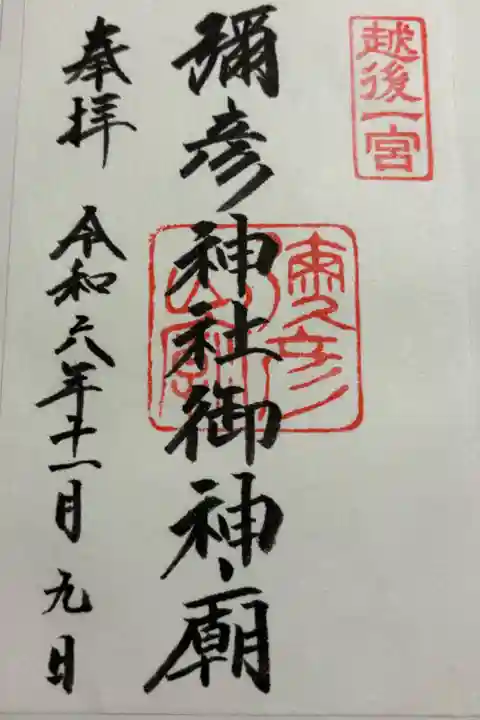 越後一宮
彌彦神社御神廟
奉拝 令和六年十一月九日